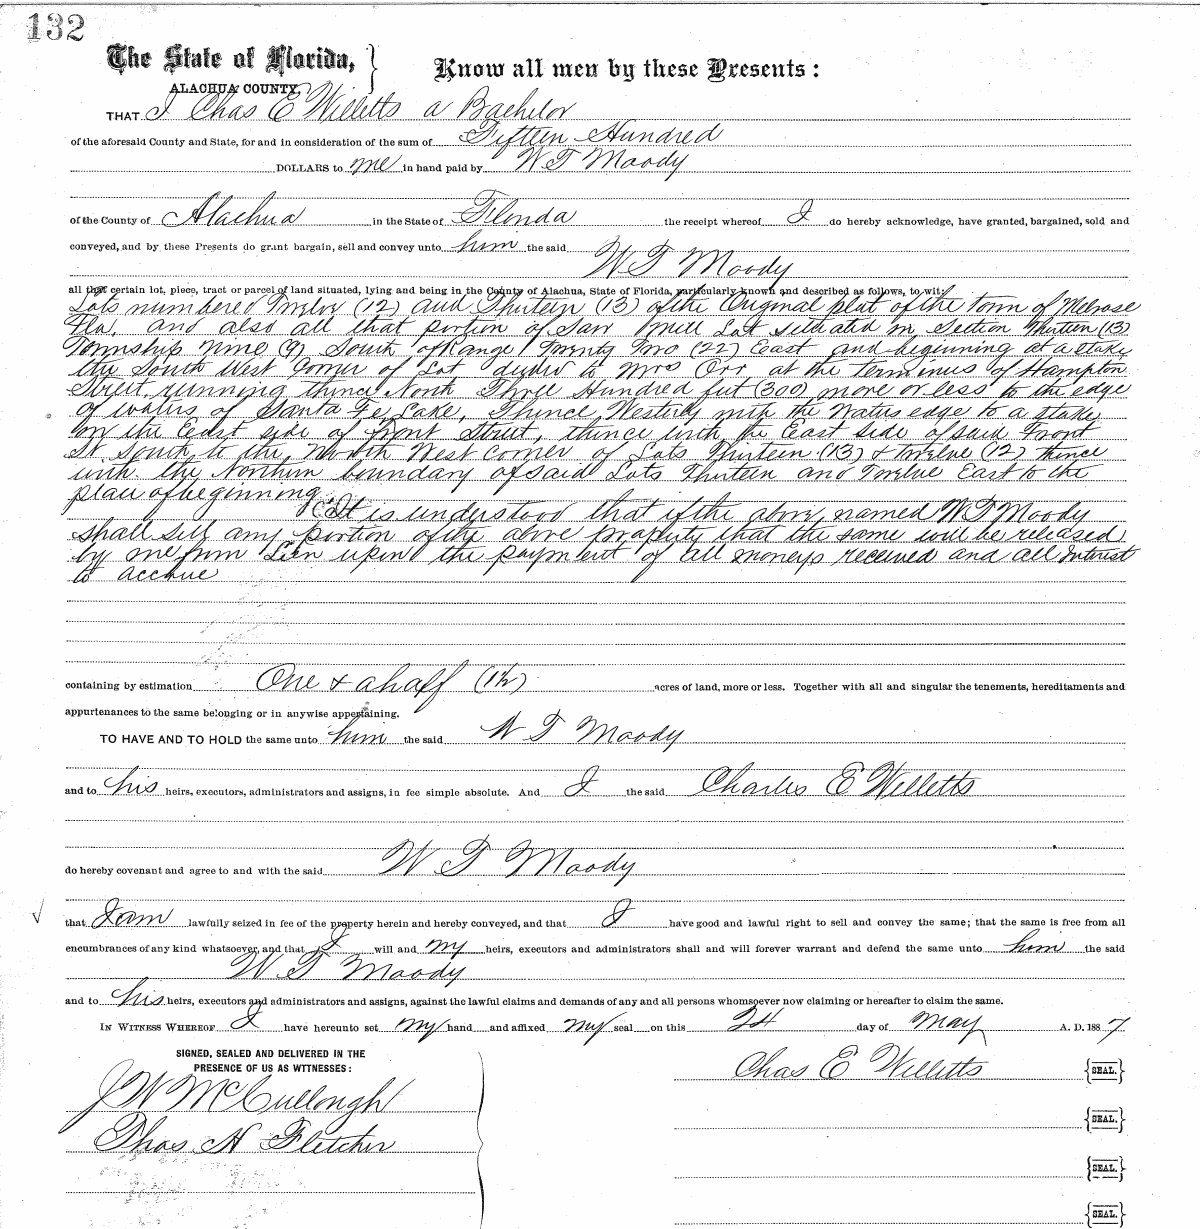 132
The State of Florida,
ALACHUA COUNTY.
Know all men by these Presents:
THAT I Chas E Willetts a Bachelor
of the aforesaid County and State, for and in consideration of the sum of Fifteen Hundred
DOLLARS to me in hand paid by W T Moody
of the County of Alachua in the State of Florida the receipt whereof I do hereby acknowledge, have granted, bargained, sold and
conveyed, and by these Presents do grant bargain, sell and convey unto him the said
W T Moody
all that certain lot, piece, tract or parcel of land situated, lying and being in the County of Alachua, State of Florida, particularly known and described as follows, to wit:
Lots numbered Twelve (12) and Thirteen (13) of the Original plat of the town of Melrose
Fla, and also all that portion of Saw Mill Lot situated in Section Thirteen (13)
Township Nine (9) South of Range Twenty Two (22) East and beginning at a stake
the South West Corner of Lot deeded to Mrs Orr at the terminus of Hampton
Street running thence North Three Hundred feet (300) more or less to the edge
of waters of Santa Fe Lake, Thence Westerly with the Waters edge to a stake
on the East side of Front Street, thence with the East side of said Front
St South to the North West Corner of Lots Thirteen (13) & Twelve (12) thence
with the Northern boundary of said Lots Thirteen and Twelve East to the
place of beginning
It is understood that if the above named W T Moody
shall sell any portion of the above property that the same will be released
by me from Lien upon the payment of all moneys received and all Interest
to accrue
containing by estimation One & a half (1½) acres of land, more or less. Together with all and singular the tenements, hereditaments and
appurtenances to the same belonging or in anywise appertaining.
TO HAVE AND TO HOLD the same unto him the said W T Moody
and to his heirs, executors, administrators and assigns, in fee simple absolute. And I the said Charles E Willetts
do hereby covenant and agree to and with the said W T Moody
that I am lawfully seized in fee of the property herein and hereby conveyed, and that I have good and lawful right to sell and convey the same; that the same is free from all
encumbrances of any kind whatsoever, and that I will and my heirs, executors and administrators shall and will forever warrant and defend the same unto him the said
W T Moody
and to his heirs, executors and administrators and assigns, against the lawful claims and demands of any and all persons whomsoever now claiming or hereafter to claim the same.
IN WITNESS WHEREOF I have hereunto set my hand and affixed my seal on this 24 day of May A. D. 1887
SIGNED, SEALED AND DELIVERED IN THE
PRESENCE OF US AS WITNESSES:
Chas E Willetts SEAL.
J W McCullough
SEAL.
Thos H Fletcher
SEAL.
SEAL.